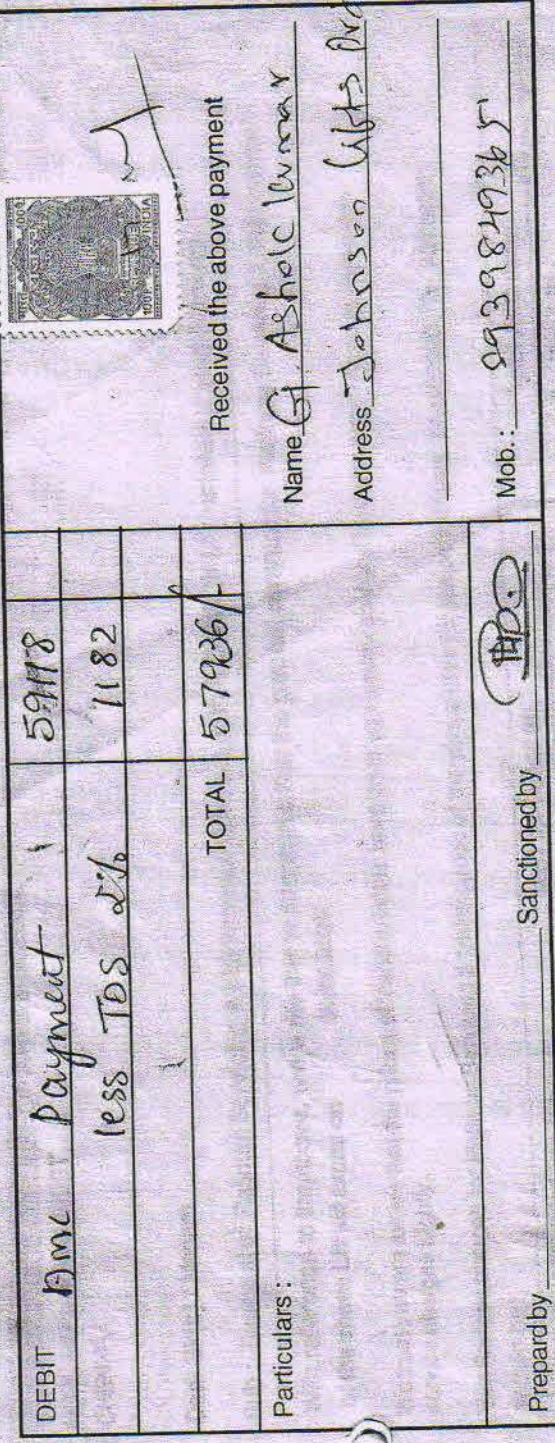 DEBIT Amc Payment 59118
less TDS 2% 1182
TOTAL 57936/-
Particulars :
Prepard by Sanctioned by
INDIA
Received the above payment
Name G. Ashok Kumar
Address Johnson Lifts
Mob. : 9939849365